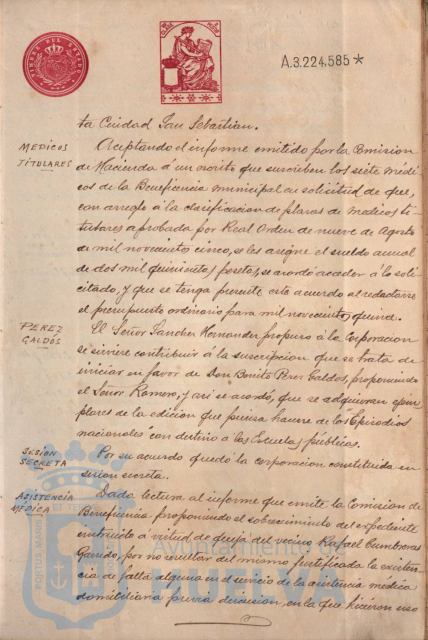 TIMBRE DEL ESTADO
A.3.224.585*
ta Ciudad San Sebastian.
MEDICOS
TITULARES
Aceptando el informe emitido por la Comision
de Hacienda á un escrito que suscriben los siete médi
cos de la Beneficencia municipal en solicitud de que,
con arreglo á la clasificacion de plazas de medicos ti-
tulares aprobada por Real Orden de nueve de Agosto
de mil novecientos cinco, se les asigne el sueldo anual
de dos mil quinientas pesetas, se acordó acceder á lo soli
citado, y que se tenga presente este acuerdo al redactarse
el presupuesto ordinario para mil novecientos quince.
PEREZ
GALDÓS
El Señor Sanchez Hernandez propuso á la Corporacion
se sirviere contribuir á la suscripcion que se trata de
iniciar en favor de Don Benito Perez Galdos, proponiendo
el Señor Romero, y asi se acordó, que se adquieran ejem
plares de la edicion que piensa hacerse de los "Episodios
nacionales" con destino á las Escuelas públicas.
SESION
SECRETA
Por su acuerdo quedó la corporacion constituida en
sesion secreta.
ASISTENCIA
MEDICA
Dada lectura al informe que emite la Comision de
Beneficencia proponiendo el sobreseimiento del expediente
instruido á virtud de queja del vecino Rafael Cumbreras
Garrido, por no resultar del mismo justificada la existen
cia de falta alguna en el servicio de la asistencia médica
domiciliaria previa discusion, en la que hicieron uso
PORTUS MARIS ET TE
Ayuntamiento de